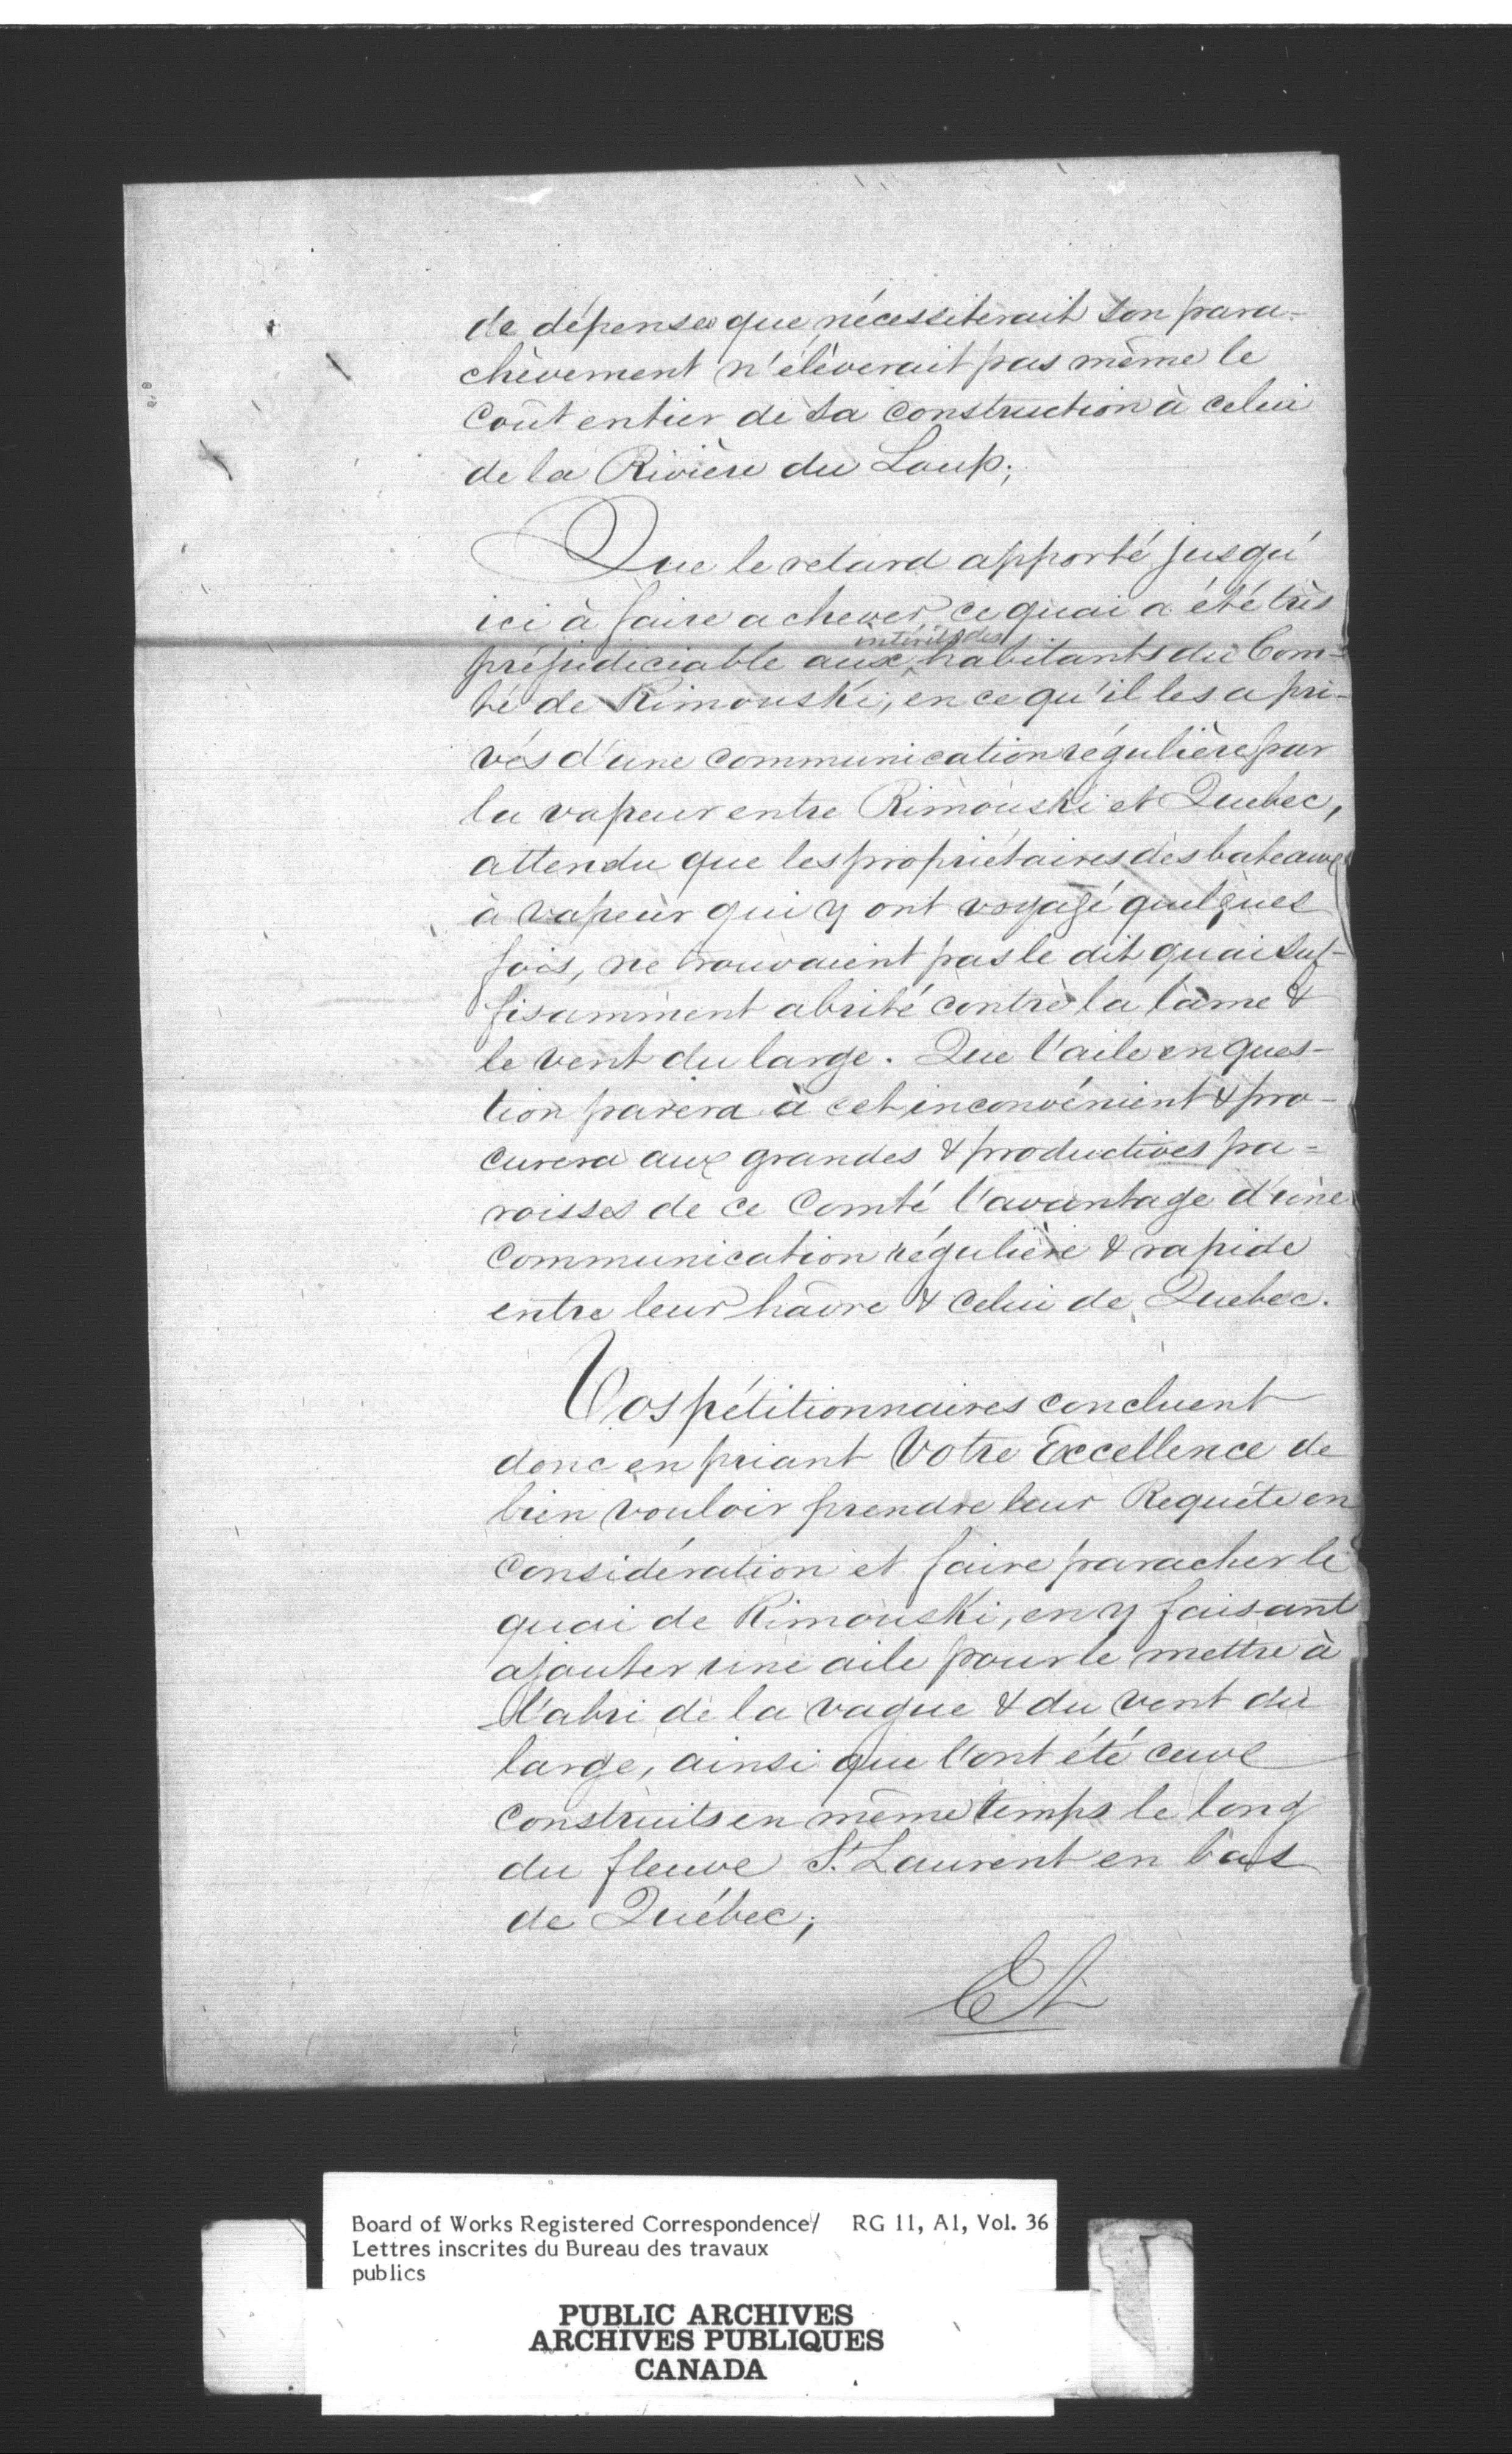 de dépenses que nécessiterait son para-
chèvement n'élèverait pas même le
coût entier de sa construction à celui
de la Rivière du Loup;
Que le retard apporté jusqu'
ici à faire achever ce quai a été très
intérêts des
préjudiciable aux habitants du Com-
té de Rimouski, en ce qu'il les a pri-
vés d'une communication régulière par
la vapeur entre Rimouski et Quebec,
attendu que les propriétaires des bateaux
à vapeur qui y ont voyagé quelques
fois, ne trouvaient pas le dit quai suf-
fisamment abrité contre la lame &
le vent du large. Que l'aile en ques-
tion parera à cet inconvénient & pro-
curera aux grandes & productives pa=
roisses de ce Comté l'avantage d'une
communication régulière & rapide
entre leur hâvre & celui de Quebec.
Vos pétitionnaires concluent
donc en priant Votre Excellence de
bien vouloir prendre leur Requête en
considération et faire paracher le
quai de Rimouski, en y faisant
ajouter une aile pour le mettre à
l'abri de la vague & du vent du
large, ainsi que l'ont été ceux
construits en même temps le long
du fleuve St. Laurent en bas
de Québec;
Et
Board of Works Registered Correspondence/ RG 11, A1, Vol. 36
Lettres inscrites du Bureau des travaux
publics
PUBLIC ARCHIVES
ARCHIVES PUBLIQUES
CANADA